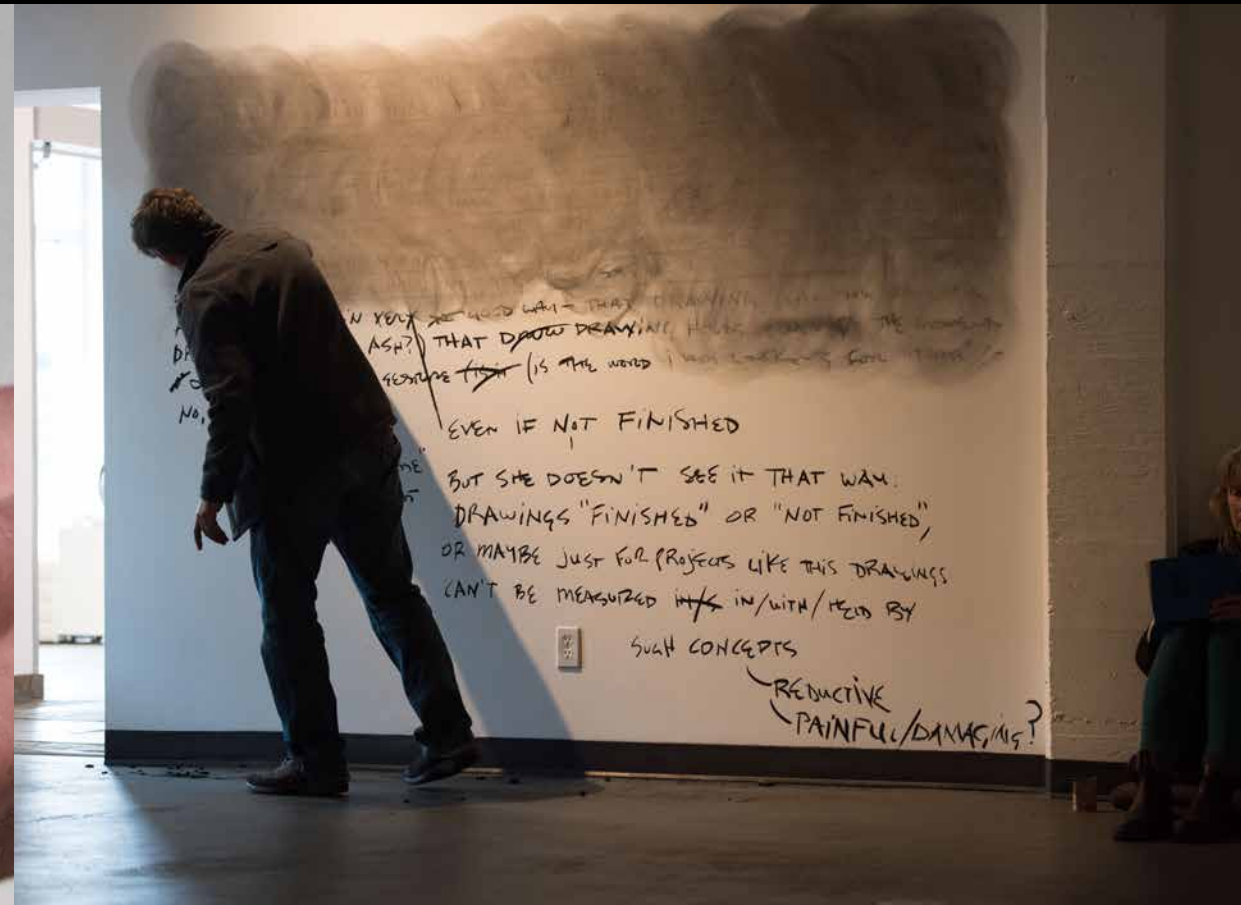 N VERY GOOD WAY - THAT DRAWING
ASH?) THAT DRAW DRAWING THE
GESTURE (IS THE WORD I WAS LOOKING FOR
NO,
EVEN IF NOT FINISHED
BUT SHE DOESN'T SEE IT THAT WAY.
DRAWINGS "FINISHED" OR "NOT FINISHED",
OR MAYBE JUST FOR PROJECTS LIKE THIS DRAWINGS
CAN'T BE MEASURED IN/S IN/WITH/HELD BY
SUCH CONCEPTS
REDUCTIVE
PAINFUL/DAMAGING?